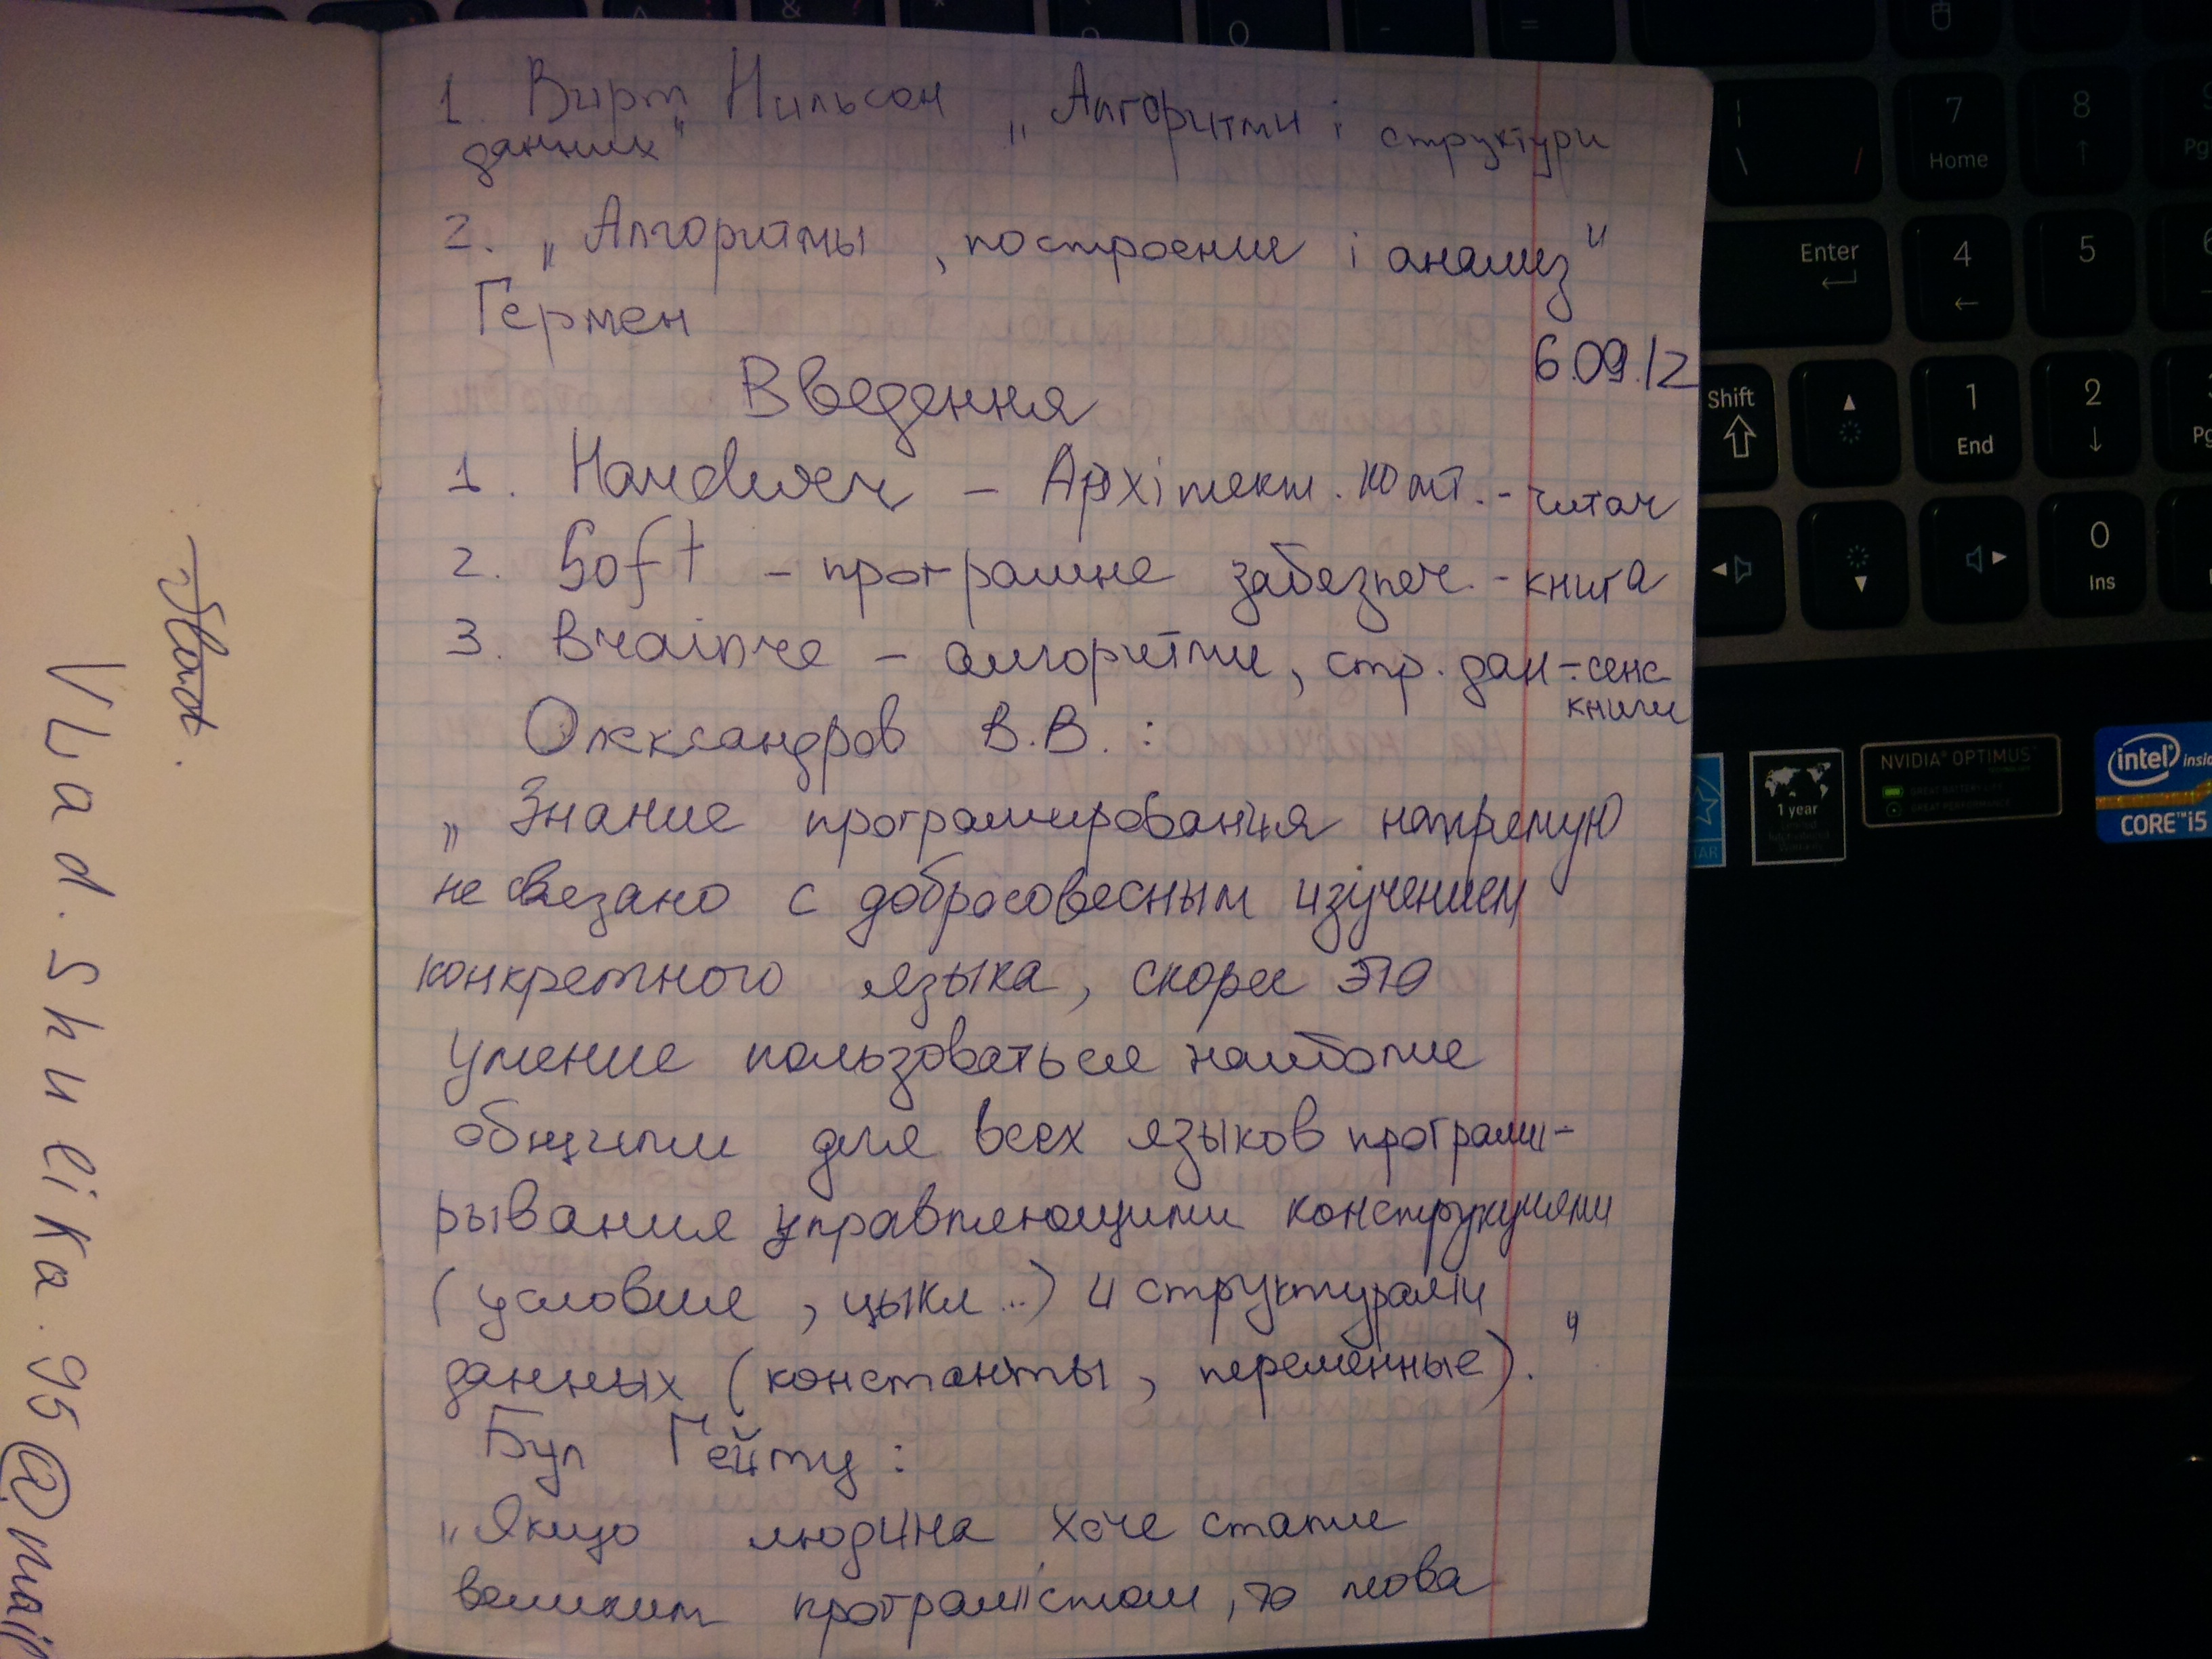 1. Вирт, Нильсон „Алгоритми і структури
данних"
2. „Алгоритмы, построение і анализ"
Гермен
6.09.12
Введення
1. – Архітект. комп. - читач
2. Soft – програмне забезпеч. - книга
3. – алгоритми, стр. дан – сенс
книги
Олександров В.В. :
„Знание програмирования напрямую
не связано с добросовесным изучением
конкретного языка, скорее это
умение пользоваться наиболие
общими для всех языков програми-
рывания управляющими конструкциями
(условие, цыкл...) и структурами
данных (константы, переменные)."
Гейтц :
„Якщо людина хоче стати
великим програмістом, то мова
Vlad.
VLad.Shueika.95@mail
7
Home
8
Enter
4
5
Shift
1
End
2
0
Ins
1 year
NVIDIA® OPTIMUS™
GREAT BATTERY LIFE
GREAT PERFORMANCE
intel inside
CORE™ i5